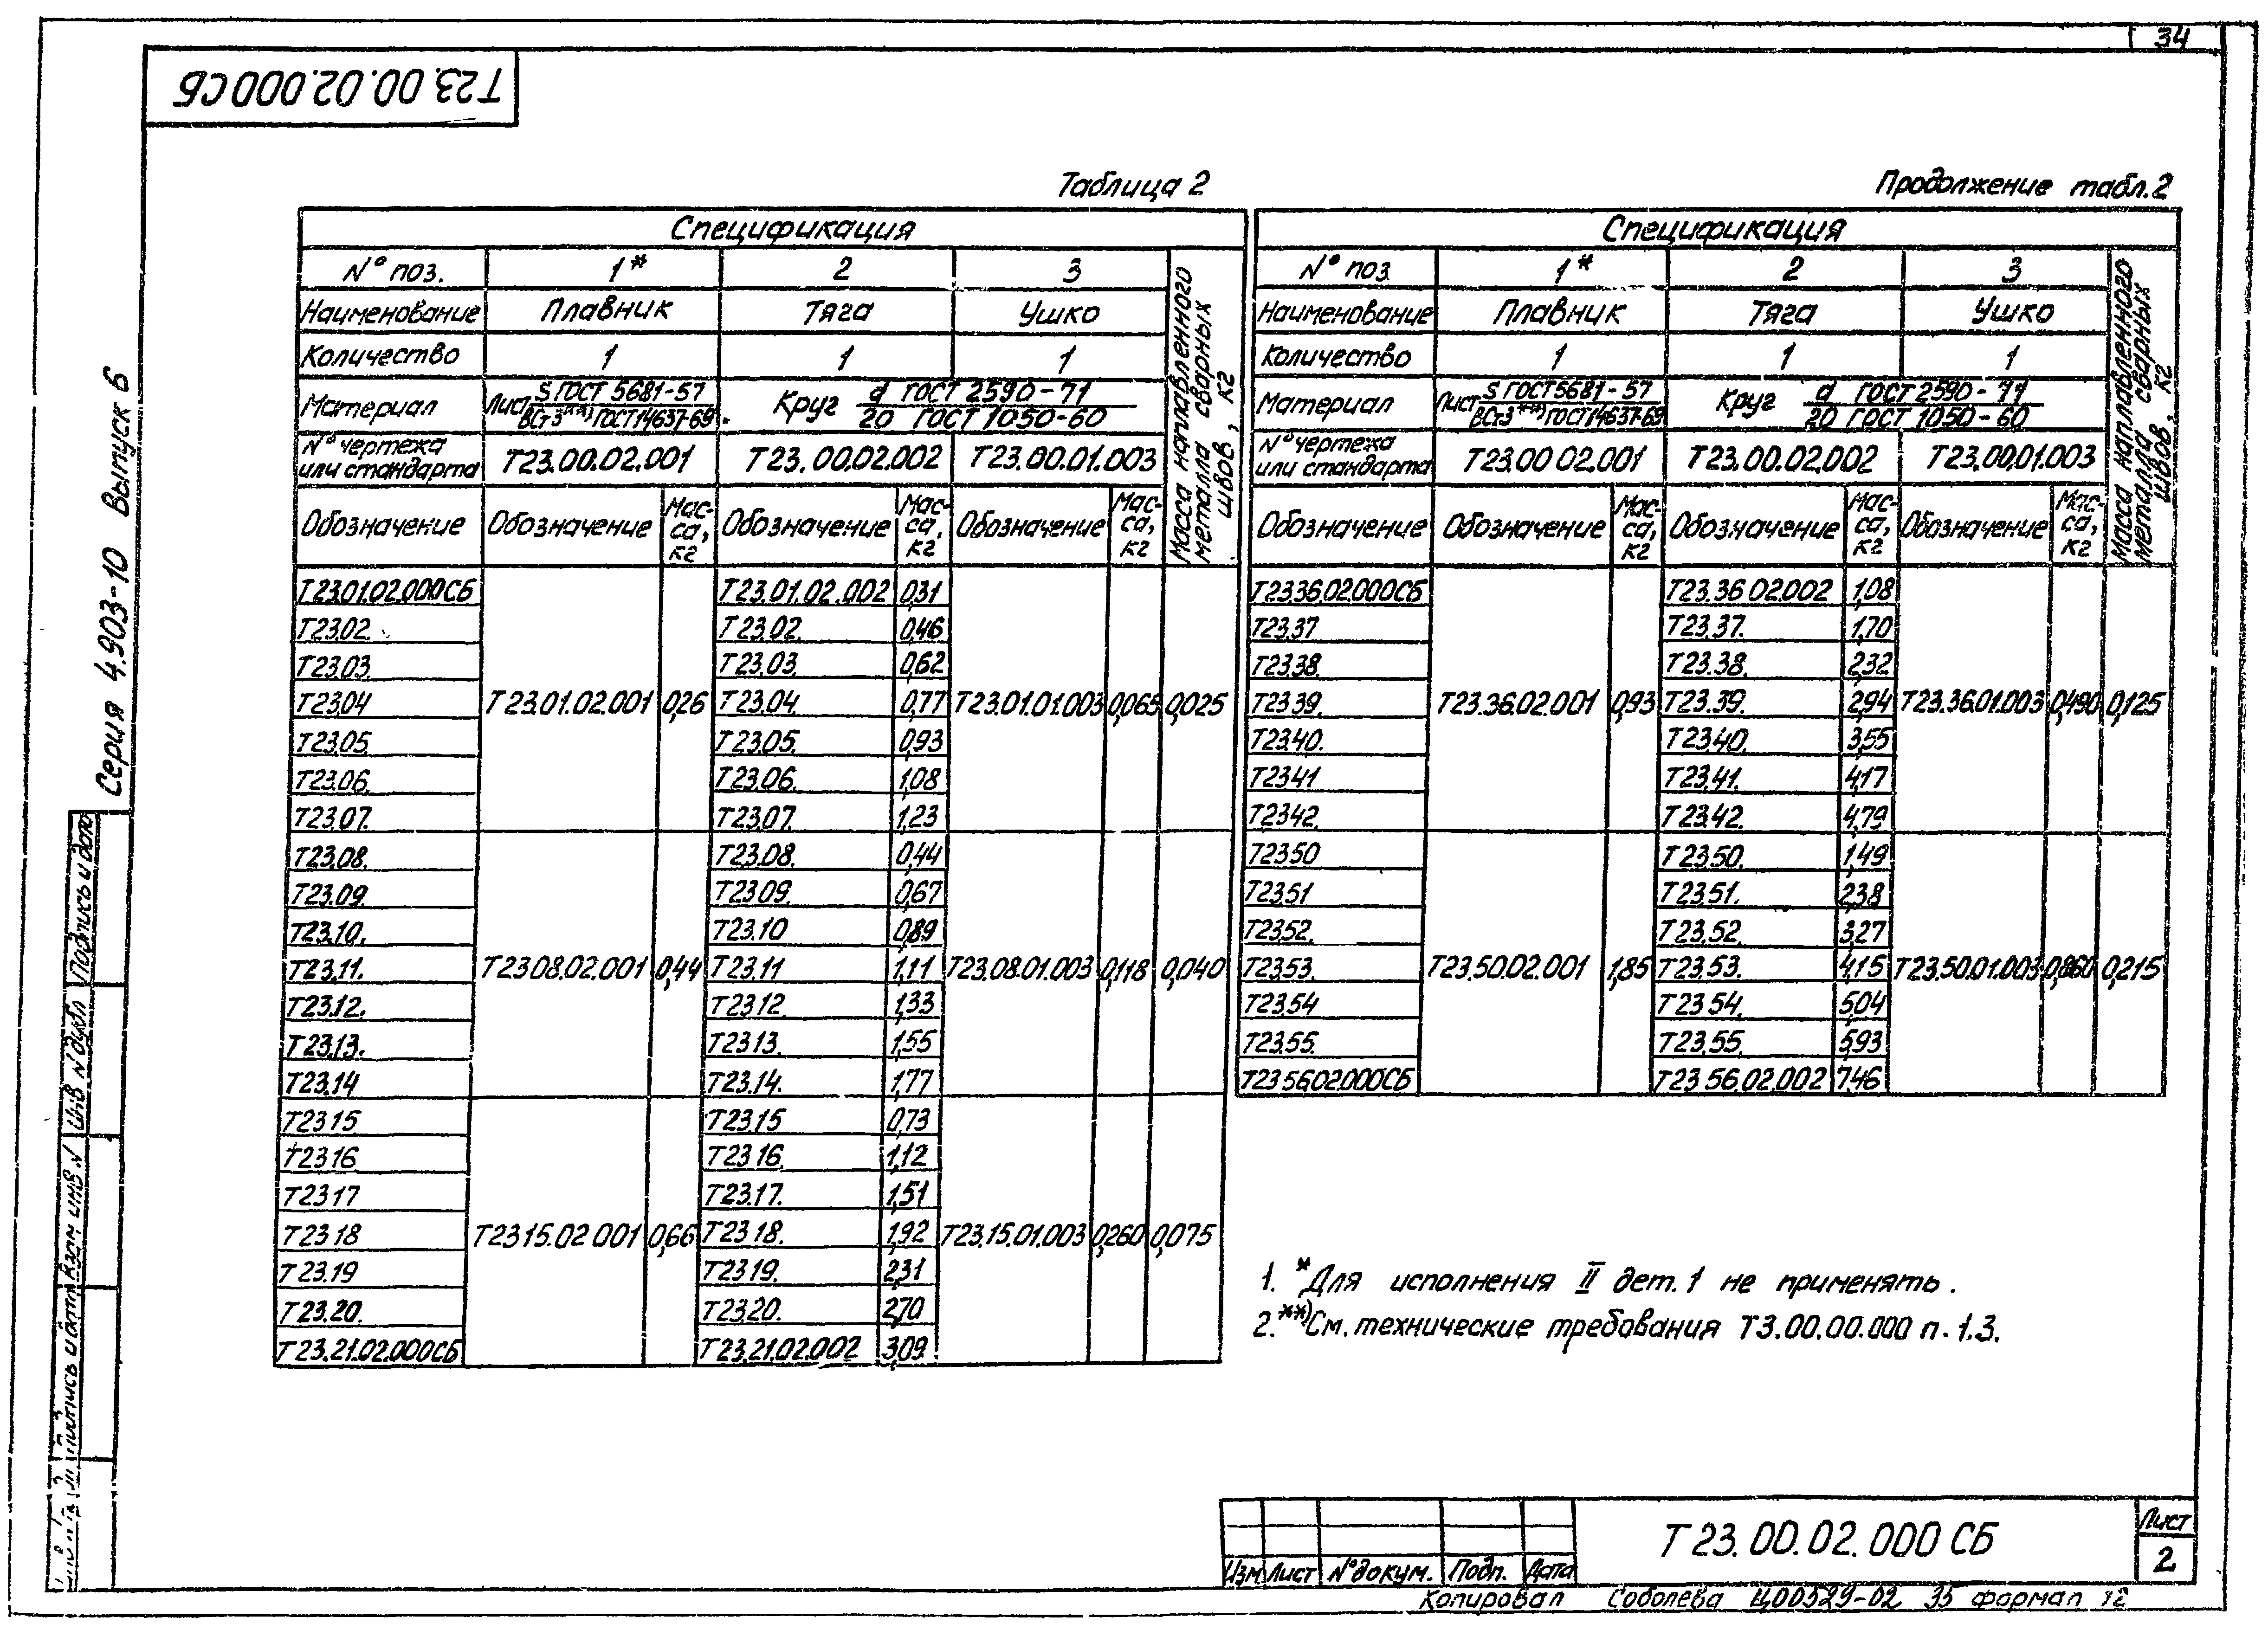 34
Т23.00.02.000СБ
Серия 4.903-10 Выпуск 6
Таблица 2
Спецификация
N° поз. 1* 2 3
Наименование Плавник Тяга Ушко
Количество 1 1 1
Материал Лист S ГОСТ 5681-57 / ВСт3**) ГОСТ14637-69 Круг d ГОСТ 2590-71 / 20 ГОСТ 1050-60
N° чертежа или стандарта Т23.00.02.001 Т23.00.02.002 Т23.00.01.003
Масса наплавленного металла сварных швов, кг
Обозначение Обозначение Мас-са, кг Обозначение Мас-са, кг Обозначение Мас-са, кг
Т23.01.02.000СБ Т23.01.02.002 0,31
Т23.02. Т23.02. 0,46
Т23.03. Т23.03. 0,62
Т23.04 Т23.01.02.001 0,26 Т23.04. 0,77 Т23.01.01.003 0,065 0,025
Т23.05. Т23.05. 0,93
Т23.06. Т23.06. 1,08
Т23.07. Т23.07. 1,23
Т23.08. Т23.08. 0,44
Т23.09. Т23.09. 0,67
Т23.10. Т23.10 0,89
Т23.11. Т23.08.02.001 0,44 Т23.11 1,11 Т23.08.01.003 0,118 0,040
Т23.12. Т23.12 1,33
Т23.13. Т23.13. 1,55
Т23.14 Т23.14. 1,77
Т23.15 Т23.15 0,73
Т23.16 Т23.16. 1,12
Т23.17 Т23.17. 1,51
Т23.18 Т23.15.02.001 0,66 Т23.18. 1,92 Т23.15.01.003 0,260 0,075
Т23.19 Т23.19. 2,31
Т23.20. Т23.20. 2,70
Т23.21.02.000СБ Т23.21.02.002 3,09
Продолжение табл.2
Спецификация
N° поз 1* 2 3
Наименование Плавник Тяга Ушко
Количество 1 1 1
Материал Лист S ГОСТ5681-57 / ВСт3**) ГОСТ14637-69 Круг d ГОСТ2590-71 / 20 ГОСТ 1050-60
N° чертежа или стандарта Т23.00 02.001 Т23.00.02.002 Т23.00.01.003
Масса наплавленного металла сварных швов, кг
Обозначение Обозначение Мас-са, кг Обозначение Мас-са, кг Обозначение Мас-са, кг
Т23.36.02.000СБ Т23.36 02.002 1,08
Т23.37 Т23.37. 1,70
Т23.38. Т23.38. 2,32
Т23.39. Т23.36.02.001 0,93 Т23.39. 2,94 Т23.36.01.003 0,490 0,125
Т23.40. Т23.40. 3,55
Т23.41 Т23.41. 4,17
Т23.42. Т23.42. 4,79
Т23.50 Т23.50. 1,49
Т23.51 Т23.51. 2,38
Т23.52. Т23.52. 3,27
Т23.53. Т23.50.02.001 1,85 Т23.53. 4,15 Т23.50.01.003 0,860 0,215
Т23.54 Т23.54. 5,04
Т23.55. Т23.55. 5,93
Т23.56.02.000СБ Т23.56.02.002 7,46
1. *Для исполнения II дет.1 не применять.
2.**)См. технические требования Т3.00.00.000 п.1.3.
Подпись и дата
Инв N°дубл
Взам инв.N
Подпись и дата
Изм Лист N°докум. Подп. Дата
Т23.00.02.000 СБ
Лист
2
Копировал Соболева Ц00529-02 35 формат 12